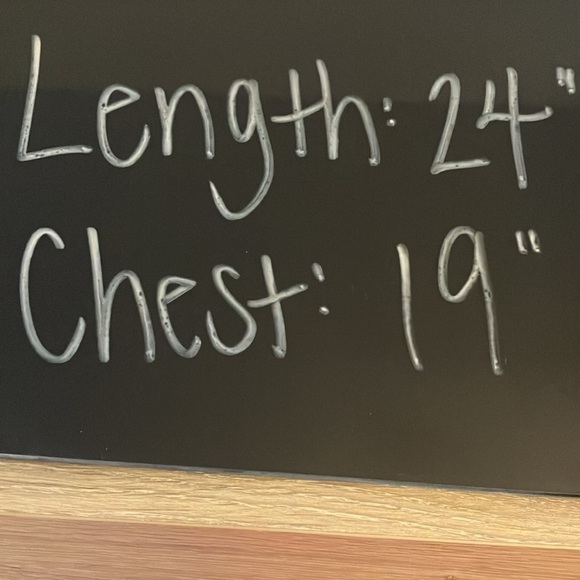 Length: 24"
Chest: 19"